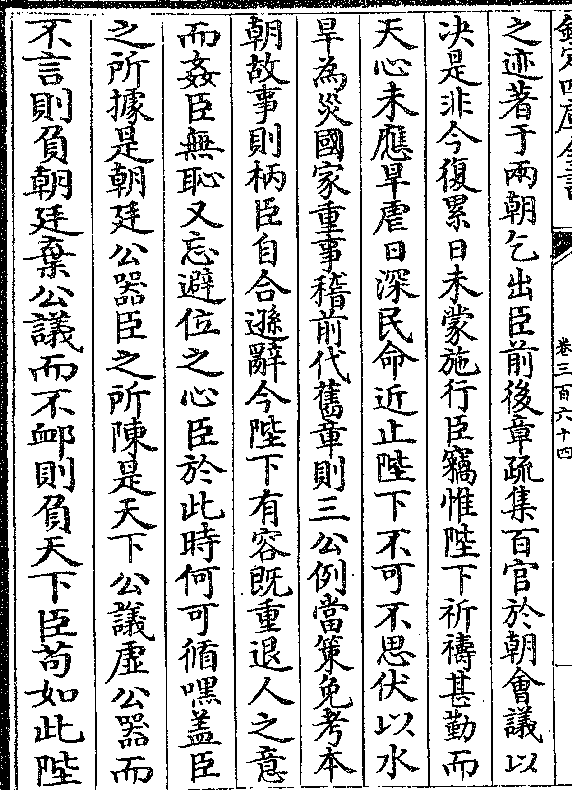 欽定四庫全書
卷三百六十四
之迹著于兩朝乞出臣前後章疏集百官於朝會議以
決是非今復累日未蒙施行臣竊惟陛下祈禱甚勤而
天心未應旱虐日深民命近止陛下不可不思伏以水
旱為災國家重事稽前代舊章則三公例當策免考本
朝故事則柄臣自合遜辭今陛下有容既重退人之意
而姦臣無恥又忘避位之心臣於此時何可循嘿盖臣
之所據是朝廷公器臣之所陳是天下公議虛公器而
不言則負朝廷棄公議而不䘏則負天下臣苟如此陛